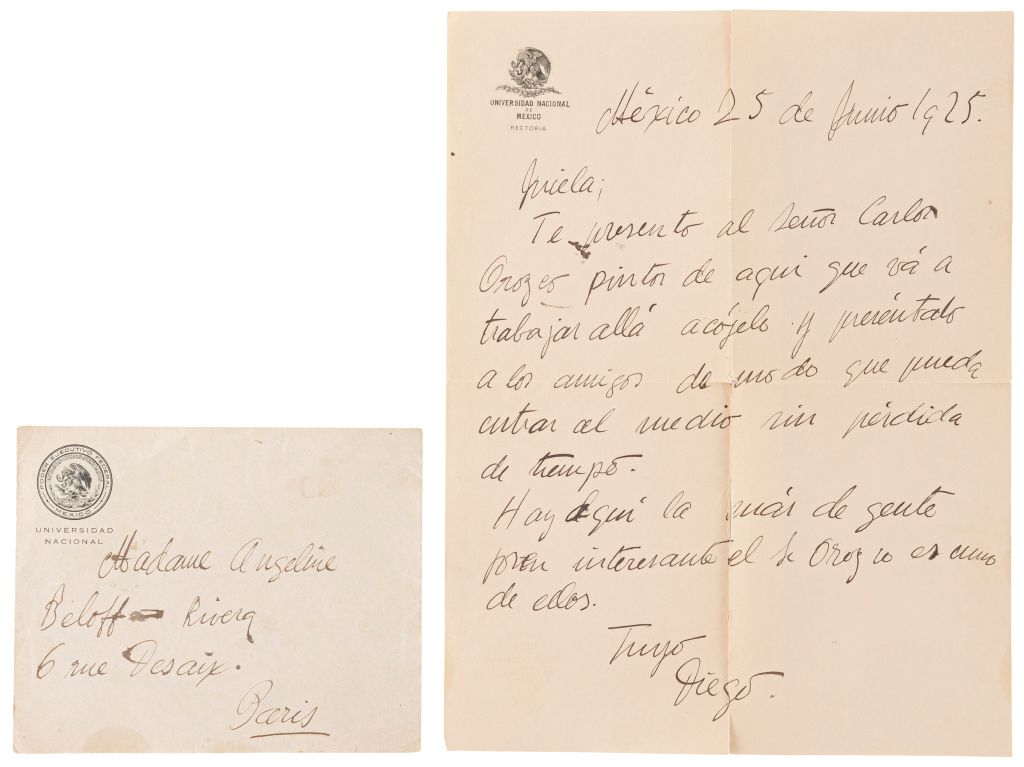 UNIVERSIDAD NACIONAL
DE
MEXICO
RECTORIA
México 25 de Junio 1925.
Te presento al Señor Carlos
Orozco pintor de aqui que vá a
trabajar allá acójelo y preséntalo
a los amigos de modo que pueda
entrar al medio sin pérdida
de tiempo.
Hay aqui la más de gente
joven interesante el Sr Orozco es uno
de ellos.
Tuyo
Diego.
PODER EJECUTIVO FEDERAL
MEXICO
UNIVERSIDAD
NACIONAL
Madame Angeline
Beloff - Rivera
6 rue Desaix.
Paris